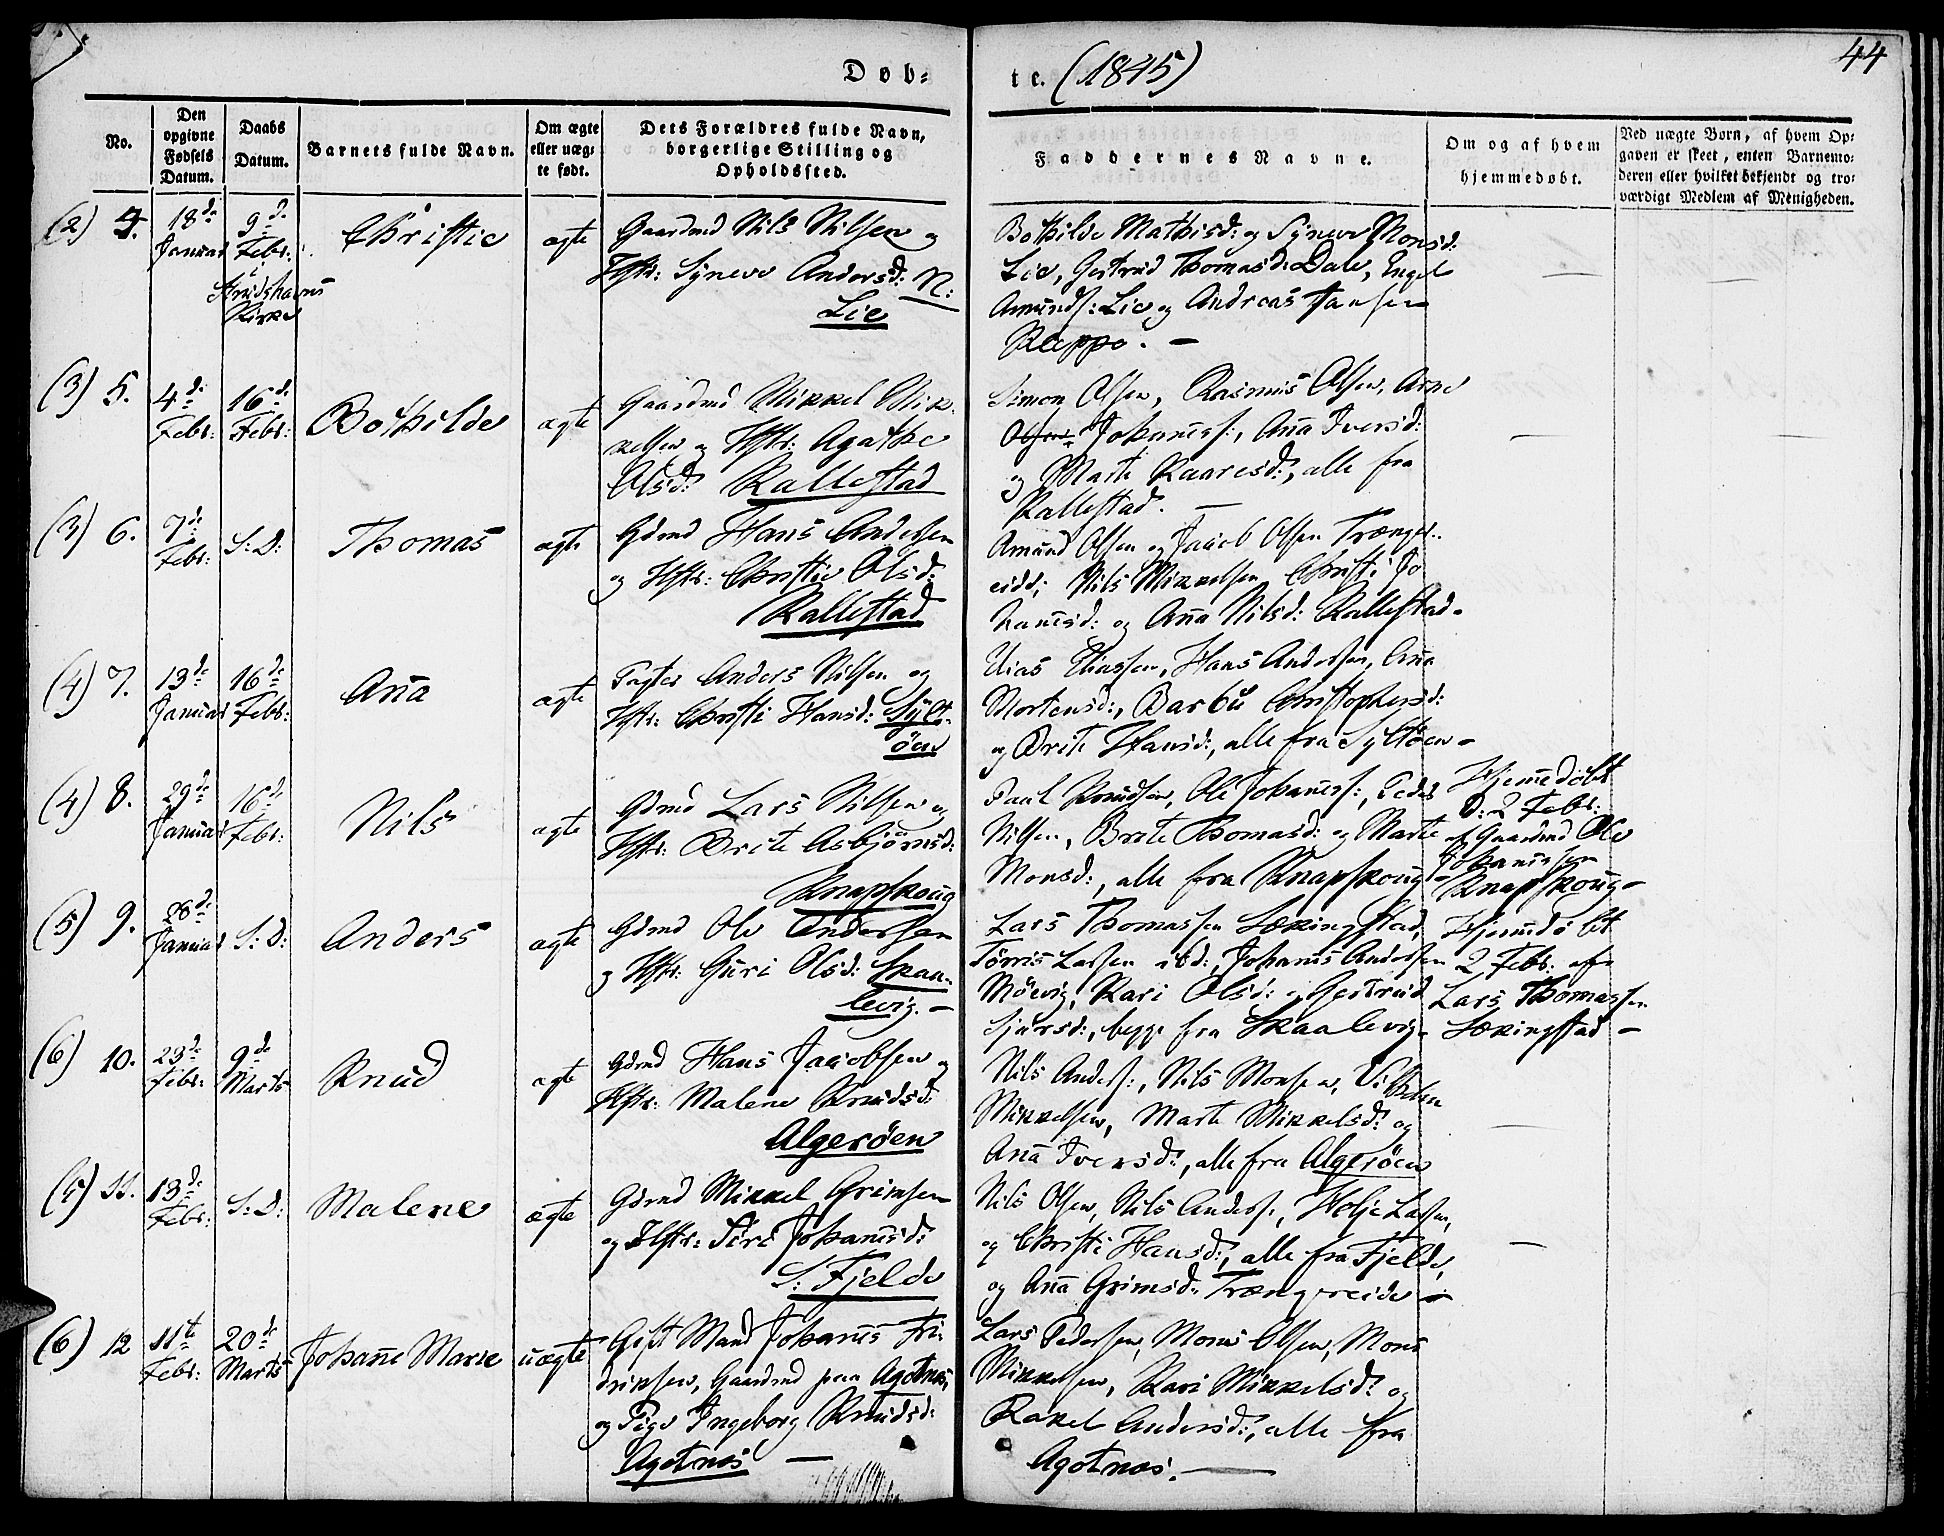 Døb=
te. (1845)
44
No.
Den opgivne Fødsels Datum.
Daabs Datum.
Barnets fulde Navn.
Om ægte eller uæg= te født.
Dets Forældres fulde Navn, borgerlige Stilling og Opholdssted.
Faddernes Navne.
Om og af hvem hjemmedøbt.
Ved uægte Børn, af hvem Op= gaven er skeet, enten Barnemo= deren eller hvilket bekjendt og tro= værdigt Medlem af Menigheden.
(2) 4. 18de Januar 9de Febr: i Kirke
Christie
ægte
Gaardmd Nils Nilsen og
Hstr: Syneve Andersd: N:
Lie
Bothilde Mathisd: og Syneve Monsd:
Lie, Gertrud Thomasd: Dale, Engel
Amunds: Lie og Andreas Jansen
Kleppe. —
(3) 5. 4de Febr: 16de Febr:
Bothilde
ægte
Gaardmd Mikkel Mik=
kelsen og Hstr: Agathe
Olsd: Kallestad
Simon Olsen, Rasmus Olsen, Arne
Olsen Johaness:, Aña Iversd:
og Marte Kaaresd:, alle fra
Kallestad. —
(3) 6. 7de Febr: S: D:
Thomas
ægte
Gdmd Hans Andersen
og Hstr: Christie Olsd:
Kallestad
Amund Olsen og Jacob Olsen Trænge=
eidd; Nils Mikkelsen Christi Jo
hanesd: og Aña Nilsd: Kallestad.
(4) 7. 13de Januar 16de Febr:
Aña
ægte
Pagter Anders Nilsen og
Hstr: Christi Hansd: Sylt=
øen
Elias Eliassen, Hans Andersen, Aña
Mortensd:, Barbu Christophersd:
og Brite Hansd:, alle fra Syltøen
(4) 8. 29de Januar 16de Febr:
Nils
ægte
Gdmd Lars Nilsen og
Hstr: Brite Asbjørnsd:
Knapskoug
Paul Knudsen, Ole Johanes:, Peder
Nilsen, Brite Thomasd: og Marte
Monsd:, alle fra Knapskoug
Hjemedøbt
D: 2 Febr:
af Gaardmd Ole
Johanessen
Knapskoug
(5) 9. 28de Januar S: D:
Anders
ægte
Gdmd Ole Andersen
og Hstr: Guri Olsd: Skaa=
levig. —
Lars Thomassen Sækingstad,
Tørris Larsen ibd:, Johanes Andersen
Møevig, Kari Olsd: og Gertrud
Sjursd:, begge fra Skaalevig
Hjemdøbt
2 Febr: af
Lars Thomassen
Sækingstad —
(6) 10. 23de Febr: 9de Marts
Knud
ægte
Gdmd Hans Jacobsen og
Hstr: Malene Knudsd:
Algerøen
Nils Anders:, Nils Monsen, Vilhelm
Mikkelsen, Marte Mikkelsd: og
Aña Iversd:, alle fra Algerøen
(5) 11. 13de Febr: S: D:
Malene
ægte
Gdmd Mikkel Grimsen
og Hstr: Siri Johanesd:
S: Fjelde
Nils Olsen, Nils Anders:, Holje Larsen,
og Christi Hansd:, alle fra Fjelde,
og Aña Grimsd: Trængereide
(6) 12 11te Febr: 20de Marts
Johañe Marie
uægte
Gift Mand Johanes Fri=
driksen, Gaardmd paa Agotnes,
og Pige Ingeborg Knudsd:
Agotnes —
Lars Pedersen, Mons Olsen, Mons
Mikkelsen, Kari Mikkelsd: og
Rakel Andersd:, alle fra
Agotnes. —